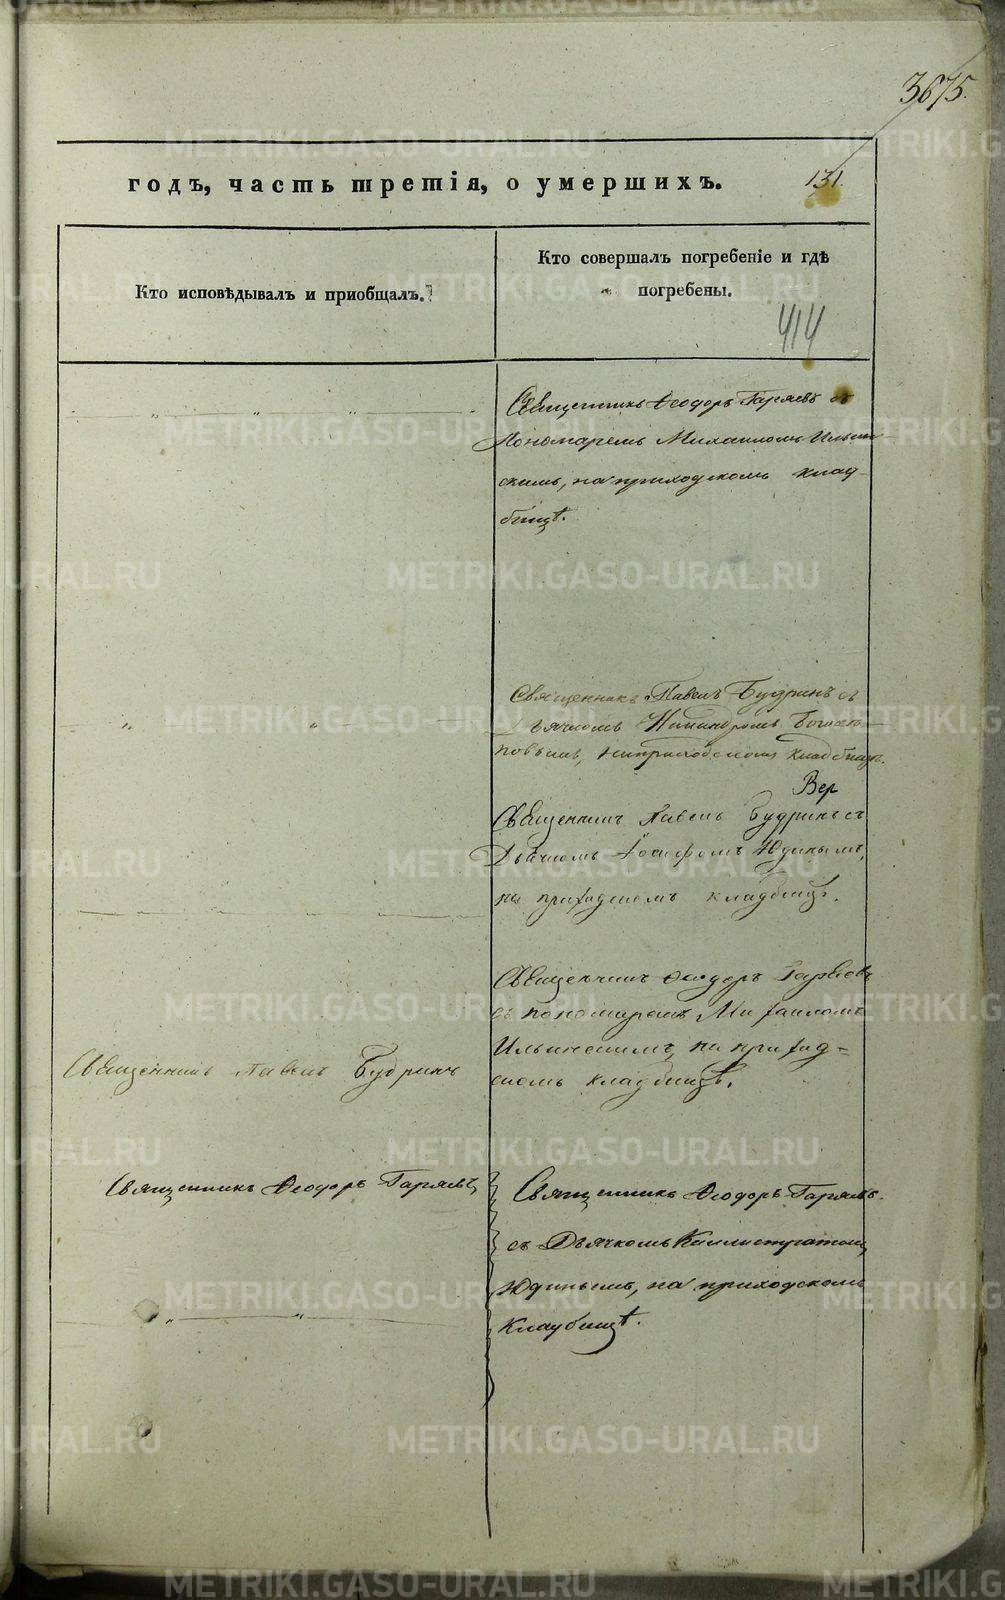 3675.
годъ, часть третія, о умершихъ.
131.
Кто исповѣдывалъ и приобщалъ.
Кто совершалъ погребеніе и гдѣ
погребены.
414
Священникъ Ѳеодоръ Гаряевъ съ
Пономаремъ Михаиломъ Ильин-
скимъ, на приходскомъ клад-
бищѣ.
Священникъ Павелъ Будринъ съ
Дьячкомъ
на приходскомъ кладбищѣ.
Вер
Священникъ Павелъ Будринъ съ
Дьячкомъ Іосифомъ Юдинымъ,
на приходскомъ кладбищѣ.
Священникъ Ѳеодоръ Гаряевъ
съ пономаремъ Михаиломъ
Ильинскимъ, на приход-
скомъ кладбищѣ.
Священникъ Павелъ Будринъ
Священникъ Ѳеодоръ Гаряевъ
Священникъ Ѳеодоръ Гаряевъ
съ Дьячкомъ Каллистратомъ
Юдинымъ, на приходскомъ
Кладбищѣ.
METRIKI.GASO-URAL.RU